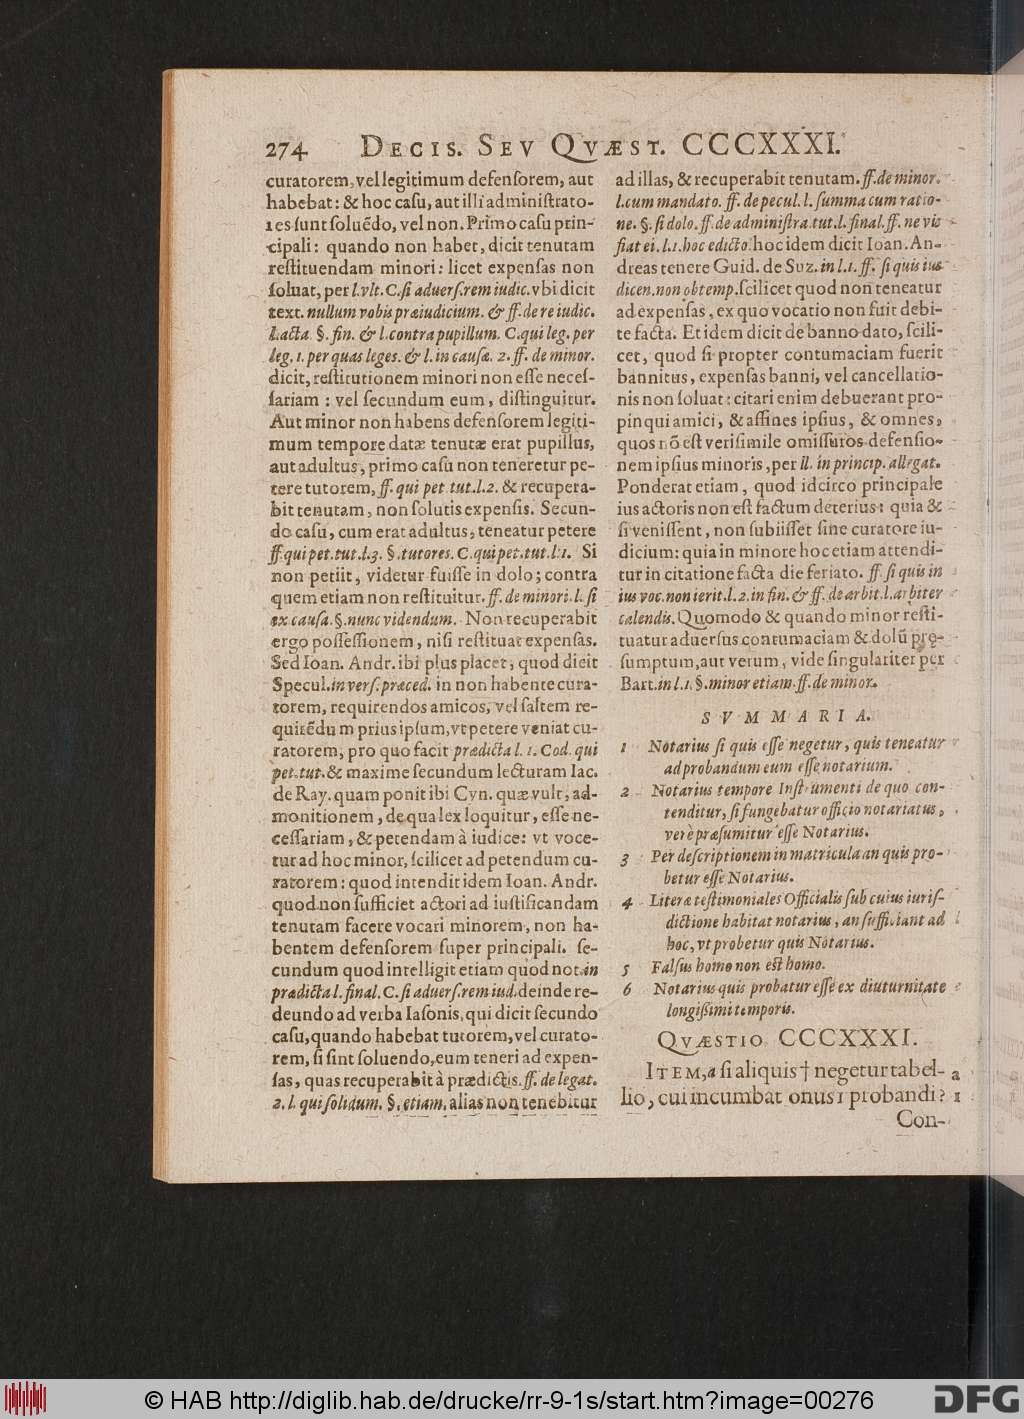 274 DECIS. SEV QVÆST. CCCXXXI.
curatorem, vel legitimum defenſorem, aut
habebat: & hoc caſu, aut illi adminiſtrato-
res ſunt ſoluẽdo, vel non. Primo caſu prin-
cipali: quando non habet, dicit tenutam
reſtituendam minori: licet expenſas non
ſoluat, per l. vlt. C. ſi aduerſ. rem iudic. vbi dicit
text. nullum vobis præiudicium. & ff. de re iudic.
l. acta. §. fin. & l. contra pupillum. C. qui leg. per
leg. 1. per quas leges. & l. in cauſæ. 2. ff. de minor.
dicit, reſtitutionem minori non eſſe neceſ-
ſariam : vel ſecundum eum, diſtinguitur.
Aut minor non habens defenſorem legiti-
mum tempore datæ tenutæ erat pupillus,
aut adultus, primo caſu non teneretur pe-
tere tutorem, ff. qui pet. tut. l. 2. & recupera-
bit tenutam, non ſolutis expenſis. Secun-
do caſu, cum erat adultus, teneatur petere
ff. qui pet. tut. l. 3. §. tutores. C. qui pet. tut. l. 1. Si
non petiit, videtur fuiſſe in dolo; contra
quem etiam non reſtituitur. ff. de minori. l. ſi
ex cauſa. §. nunc videndum. Non recuperabit
ergo poſſeſſionem, niſi reſtituat expenſas.
Sed Ioan. Andr. ibi plus placet, quod dicit
Specul. in verſ. præced. in non habente cura-
torem, requirendos amicos, vel ſaltem re-
quirẽdum prius ipſum, vt petere veniat cu-
ratorem, pro quo facit prædicta l. 1. Cod. qui
pet. tut. & maxime ſecundum lecturam Iac.
de Ray. quam ponit ibi Cyn. quæ vult, ad-
monitionem, de qua lex loquitur, eſſe ne-
ceſſariam, & petendam à iudice: vt voce-
tur ad hoc minor, ſcilicet ad petendum cu-
ratorem: quod intendit idem Ioan. Andr.
quod non ſufficiet actori ad iuſtificandam
tenutam facere vocari minorem, non ha-
bentem defenſorem ſuper principali. ſe-
cundum quod intelligit etiam quod not. in
prædicta l. final. C. ſi aduerſ. rem iud. deinde re-
deundo ad verba Iaſonis, qui dicit ſecundo
caſu, quando habebat tutorem, vel curato-
rem, ſi ſint ſoluendo, eum teneri ad expen-
ſas, quas recuperabit à prædictis. ff. de legat.
2. l. qui ſolidum. §. etiam. alias non tenebitur
ad illas, & recuperabit tenutam. ff. de minor.
l. cum mandato. ff. de pecul. l. ſumma cum ratio-
ne. §. ſi dolo. ff. de adminiſtra. tut. l. final. ff. ne vis
fiat ei. l. 1. hoc edicto. hoc idem dicit Ioan. An-
dreas tenere Guid. de Suz. in l. 1. ff. ſi quis ius
dicen. non obtemp. ſcilicet quod non teneatur
ad expenſas, ex quo vocatio non fuit debi-
te facta. Et idem dicit de banno dato, ſcili-
cet, quod ſi propter contumaciam fuerit
bannitus, expenſas banni, vel cancellatio-
nis non ſoluat: citari enim debuerant pro-
pinqui amici, & affines ipſius, & omnes,
quos nõ eſt veriſimile omiſſuros defenſio-
nem ipſius minoris, per ll. in princip. allegat.
Ponderat etiam, quod idcirco principale
ius actoris non eſt factum deterius: quia &
ſi veniſſent, non ſubiiſſet ſine curatore iu-
dicium: quia in minore hoc etiam attendi-
tur in citatione facta die feriato. ff. ſi quis in
ius voc. non ierit. l. 2. in fin. & ff. de arbit. l. arbiter
calendis. Quomodo & quando minor reſti-
tuatur aduerſus contumaciam & dolũ præ-
ſumptum, aut verum, vide ſingulariter per
Bart. in l. 1. §. minor etiam. ff. de minor.
SVMMARIA.
1 Notarius ſi quis eſſe negetur, quis teneatur
ad probandum eum eſſe notarium.
2 Notarius tempore Inſtrumenti de quo con-
tenditur, ſi fungebatur officio notariatus,
verè præſumitur eſſe Notarius.
3 Per deſcriptionem in matricula an quis pro-
betur eſſe Notarius.
4 Literæ teſtimoniales Officialis ſub cuius iuriſ-
dictione habitat notarius, an ſufficiant ad
hoc, vt probetur quis Notarius.
5 Falſus homo non eſt homo.
6 Notarius quis probatur eſſe ex diuturnitate
longiſſimi temporis.
QVÆSTIO CCCXXXI.
ITEM, a ſi aliquis † negetur tabel- a
lio, cui incumbat onus 1 probandi? 1
Con-
© HAB http://diglib.hab.de/drucke/rr-9-1s/start.htm?image=00276
DFG